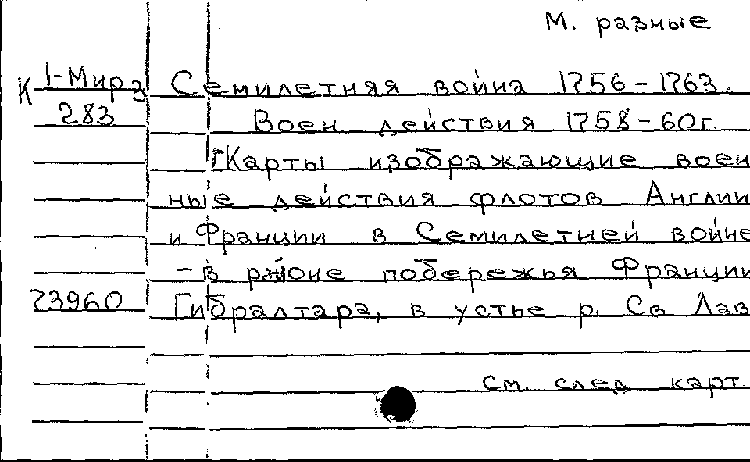 М. разные
К 1-Мирз
283
Семилетняя война 1756-1763.
Воен действия 1758-60г.
[Карты изображающие воен
ные действия флотов Англии
и Франции в Семилетней войне
- в рйоне побережья Франции
23960
Гибралтара, в устье р. Св Лав
см. след карт.